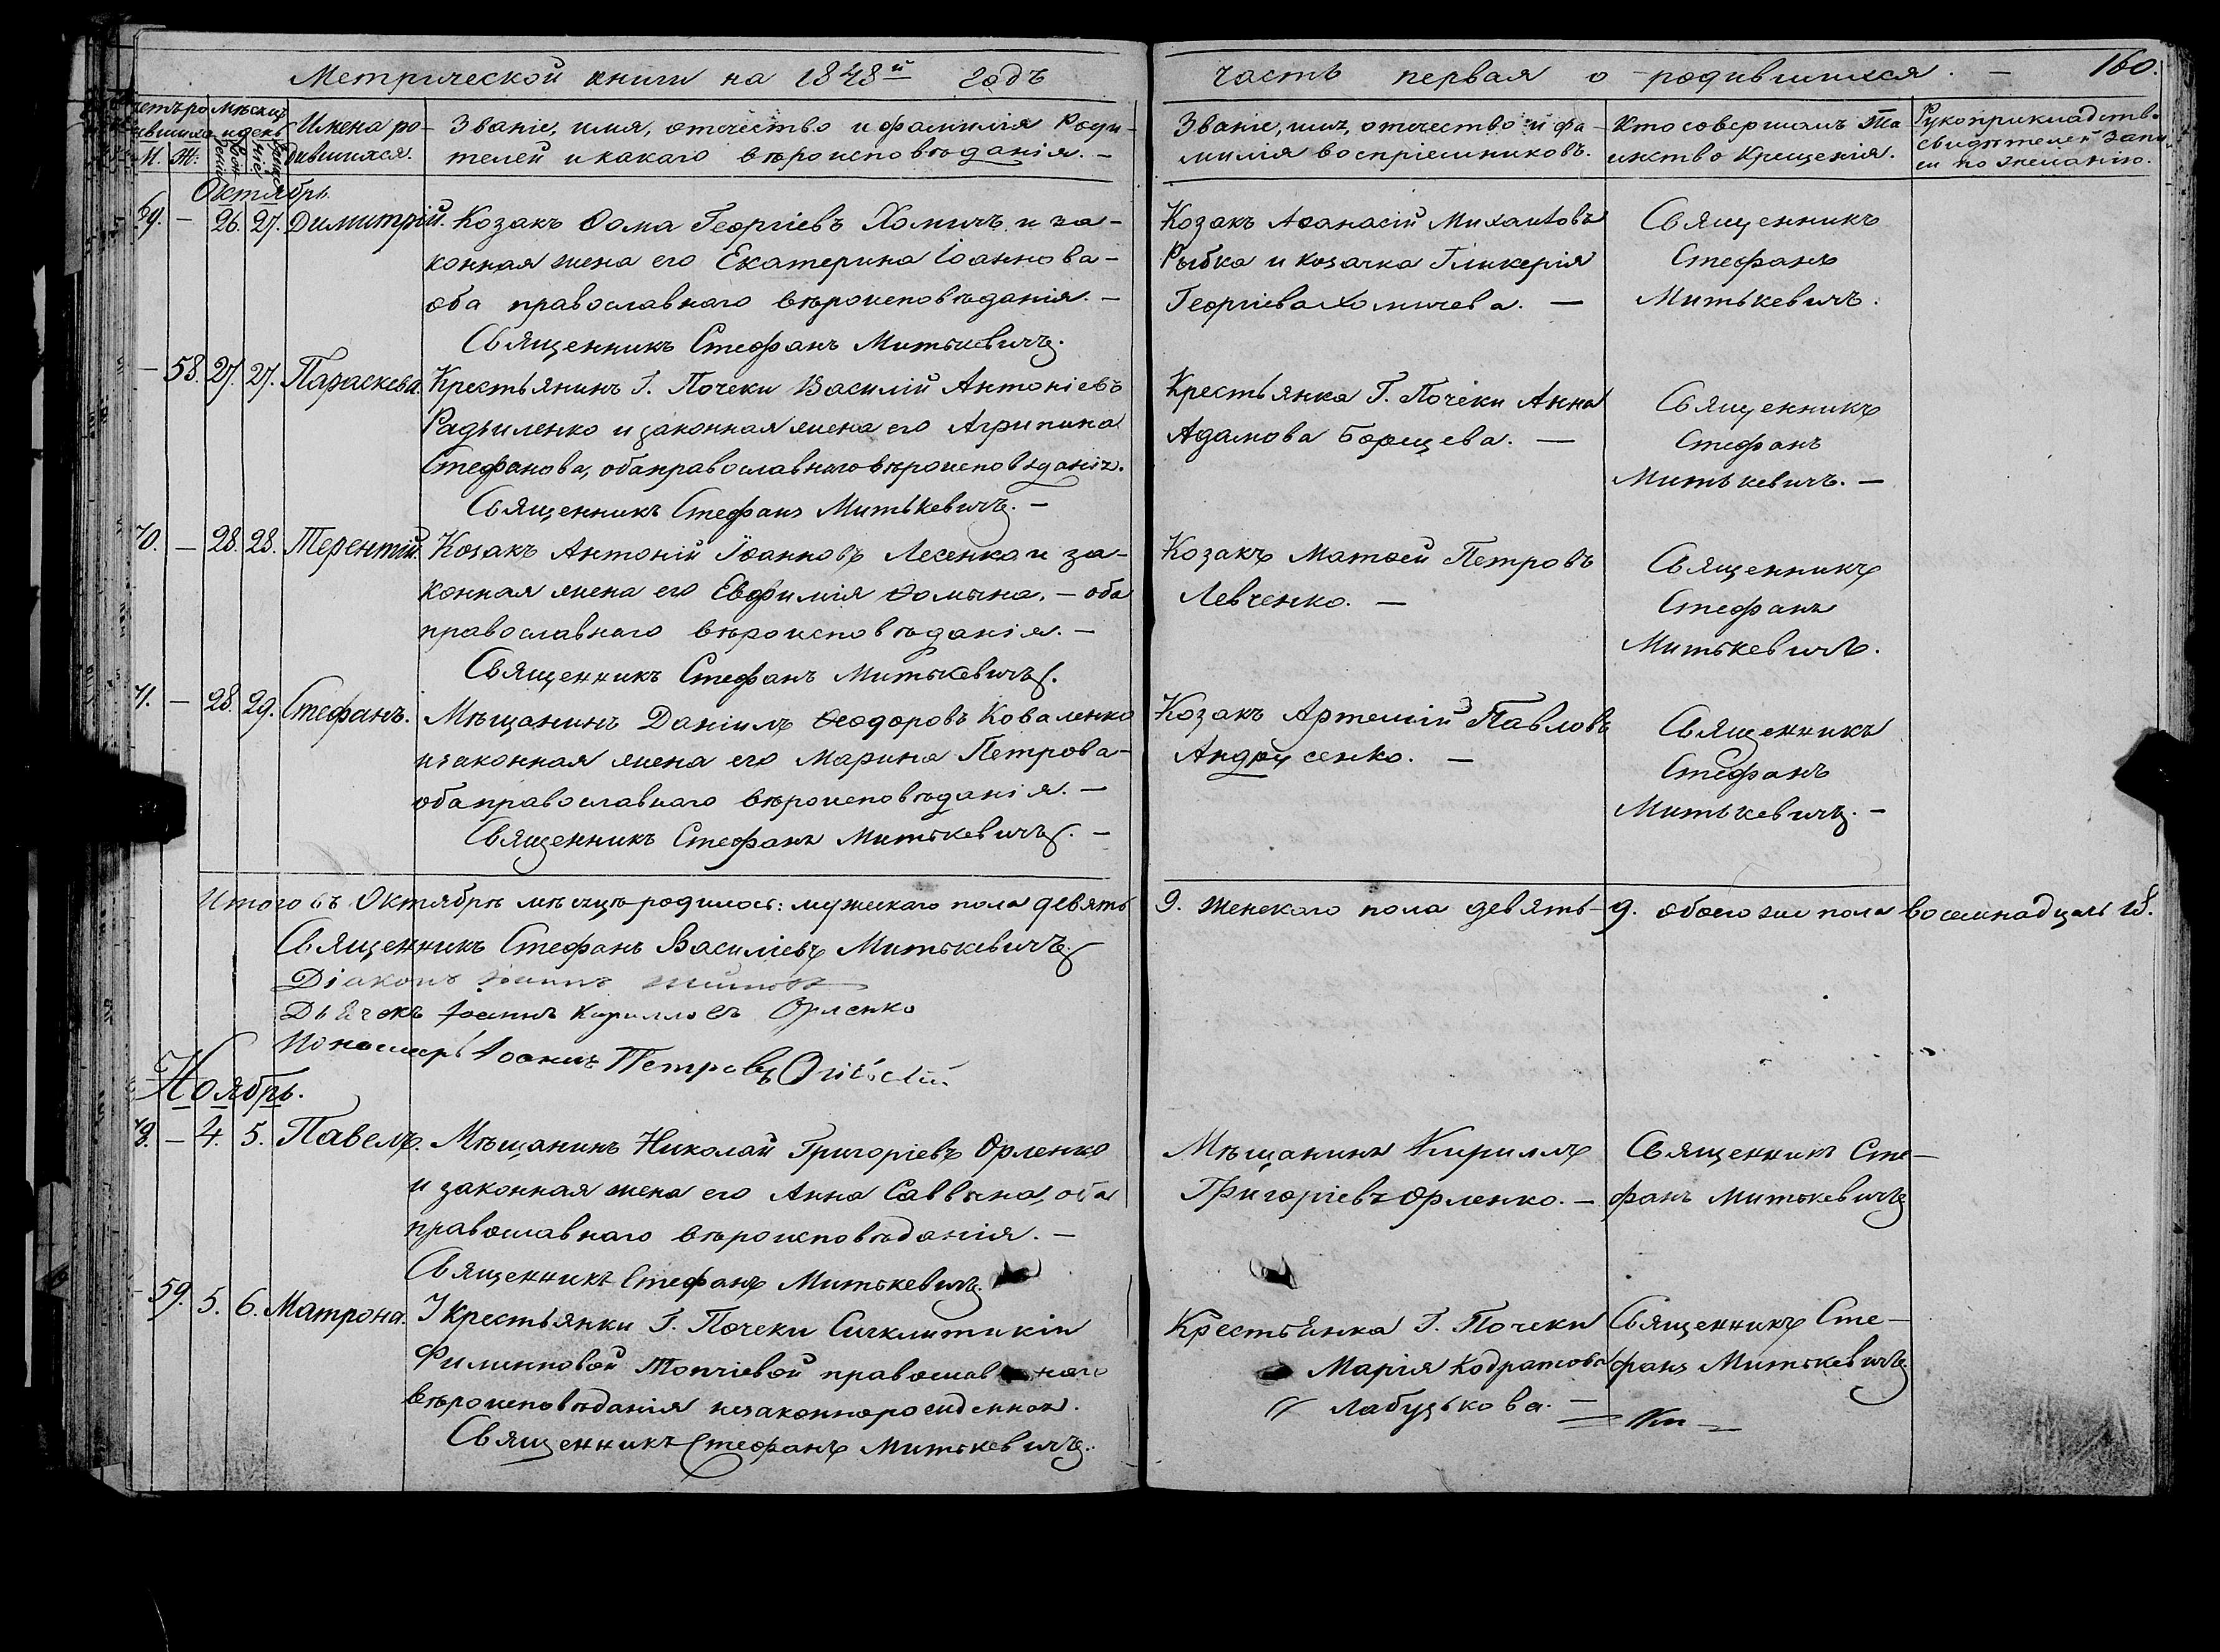 Метрической книги на 1848й годъ
часть первая о родившихся. — 160.
Имена ро-
дившихся.
Званіе, имя, отечество и фамилія Роди-
телей и какаго вѣроисповѣданія. —
Званіе, имя, отечество и фа-
милія воспріемниковъ.
Кто совершалъ та
инство Крещенія.
Рукоприкладство
свидѣтелей запи
си по желанію.
М. Ж:
Октябрь.
69. — 26. 27. Димитрій. Козакъ Ѳома Георгіевъ Хомичъ и за-
конная жена его Екатерина Іоаннова-
оба православнаго вѣроисповѣданія. —
Священникъ Стефанъ Митькевичъ.
Козакъ Аѳанасій Михаиловъ
Рыбка и козачка Гликерія
Георгіева Хомичева. —
Священникъ
Стефанъ
Митькевичъ.
— 58. 27. 27. Параскева. Крестьянинъ Г. Почеки Василій Антоніевъ
Радьиленко и законная жена его Агрипина
Стефанова, оба православнаго вѣроисповѣданія.
Священникъ Стефанъ Митькевичъ. —
Крестьянка Г. Почеки Анна
Адамова Борщева. —
Священникъ
Стефанъ
Митькевичъ. —
70. — 28. 28. Терентій. Козакъ Антоній Іоанновъ Лесенко и за-
конная жена его Евфимія Ѳомына. — оба
православнаго вѣроисповѣданія. —
Священникъ Стефанъ Митькевичъ.
Козакъ Матѳей Петровъ
Левченко. —
Священникъ
Стефанъ
Митькевичъ.
71. — 28. 29. Стефанъ. Мѣщанинъ Даніилъ Ѳеодоровъ Коваленко
и законная жена его Марина Петрова-
оба православнаго вѣроисповѣданія. —
Священникъ Стефанъ Митькевичъ. —
Козакъ Артемій Павловъ
Андрусенко. —
Священникъ
Стефанъ
Митькевичъ. —
Итого въ Октябрѣ мѣсяцѣ родилось: мужескаго пола девять 9. женскаго пола девять — 9. обоего же пола восемнадцать 18.
Священникъ Стефанъ Василіевъ Митькевичъ
Діаконъ
Дьячокъ Іоаннъ Кирилловъ Орленко
Пономарь Іоаннъ Петровъ
Ноябрь.
— 4. 5. Павелъ. Мѣщанинъ Николай Григоріевъ Орленко
и законная жена его Анна Саввына, оба
православнаго вѣроисповѣданія. —
Священникъ Стефанъ Митькевичъ.
Мѣщанинъ Кириллъ
Григоріевъ Орленко. —
Священникъ Сте-
фанъ Митькевичъ
— 59. 5. 6. Матрона. У крестьянки Г. Почеки Сигклитикіи
Филипповой Топчіевой православнаго
вѣроисповѣданія незаконнорожденная.
Священникъ Стефанъ Митькевичъ.
Крестьянка Г. Почеки
Марія Кодратова
Лабузькова. —
Священникъ Сте-
фанъ Митькевичъ